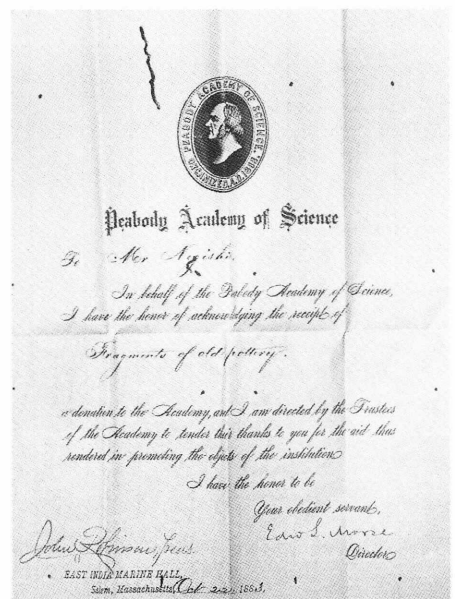 PEABODY ACADEMY OF SCIENCE.
Peabody Academy of Science
To Mr
In behalf of the Peabody Academy of Science,
I have the honor of acknowledging the receipt of
Fragments of old pottery.
a donation to the Academy, and I am directed by the Trustees
of the Academy to tender their thanks to you for the aid thus
rendered in promoting the objects of the institution
I have the honor to be
Your obedient servant,
Edw S. Morse
Director
John Robinson, Treas
EAST INDIA MARINE HALL,
Salem, Massachusetts, Oct 22 188